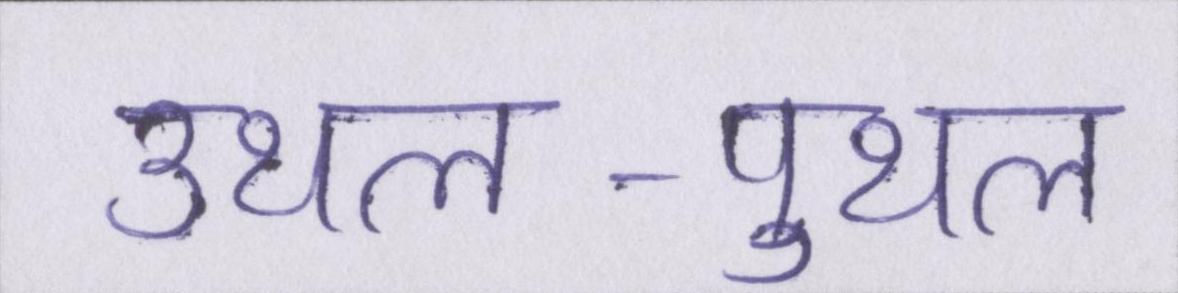 उथल-पुथल